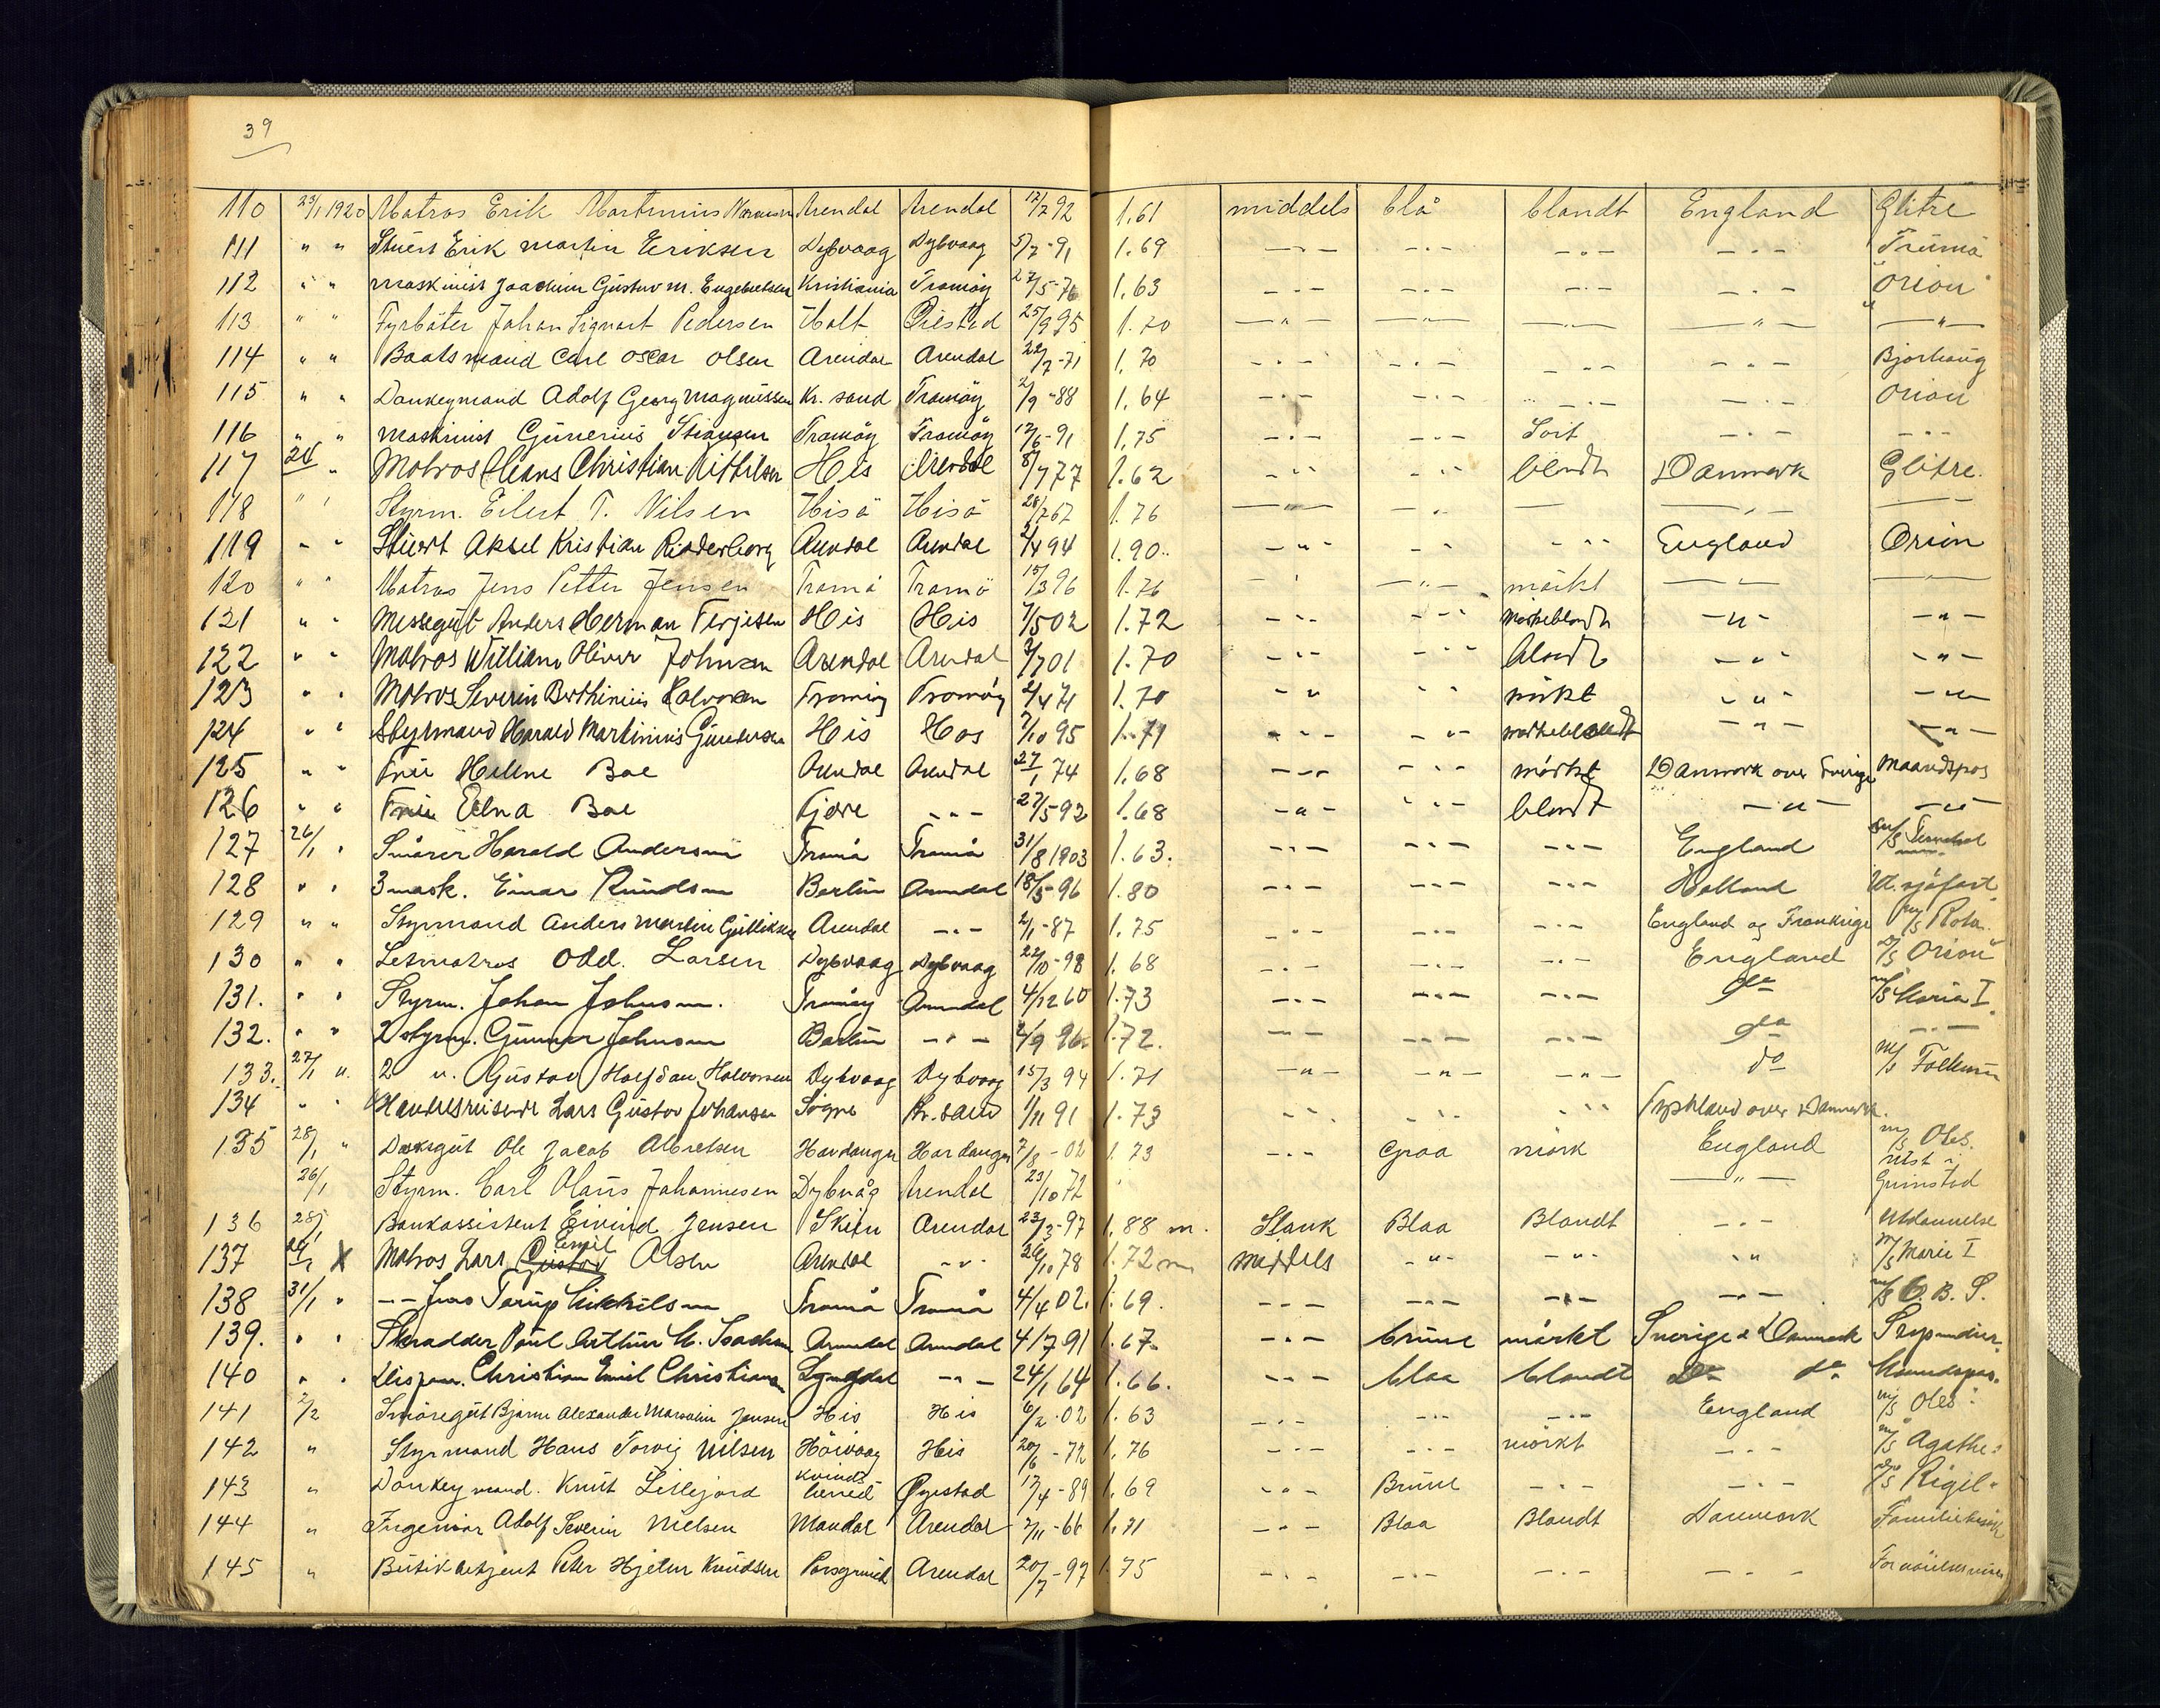 39
110 23/1 1920 Matros Erik Martinius Arendal Arendal 12/2 92 1.61 middels blå blandt England Glitre
111 " " Stuert Erik Martin Eriksen Dybvaag Dybvaag 5/7-91 1.69 -"- -"- -"- -"- Trumå
112 " " Maskinist Joachim Gustav M. Engebretsen Kristiania Tromöy 27/5-76 1.63 -"- -"- -"- -"- "Orion"
113 " " Fyrböter Johan Sigvart Pedersen Holt Öiestad 25/9 95 1.70 -"- -"- -"- -"- -"-
114 " " Baatsmand Carl Oscar Olsen Arendal Arendal 22/7-71 1.70 -"- -"- -"- -"- Bjorhaug
115 " " Donkeymand Adolf Georg Magnussen Kr. sand Tromöy 2/9-88 1.64 -"- -"- -"- -"- Orion
116 " " Maskinist Gunerius Stiansen Tromöy Tromöy 12/6-91 1.75 -"- -"- Sort -"- -"-
117 24 " Matros Hans Christian Kittilsen His Arendal 8/7 77 1.62 -"- -"- blondt Danmark Glitre.
118 " " Styrm. Eilert T. Nilsen Hisö Hisö 28/7 67 1.76 -"- -"- — -"- —
119 " " Stuert Aksel Kristian Rinderborg Arendal Arendal 2/4 94 1.90 -"- -"- -"- England Orion
120 " " Matros Jens Petter Jensen Tromö Tromö 15/3 96 1.76 -"- -"- mörkt -"- -"-
121 " " Messegut Anders Herman Terjesen His His 7/5 02 1.72 -"- -"- mörkeblondt -"- -"-
122 " " Matros William Oliver Johnsen Arendal Arendal 2/7 01 1.70 -"- -"- blondt -"- -"-
123 " " Matros Severin Berthinius Halvorsen Tromöy Tromöy 2/4 71 1.70 -"- -"- mörkt -"- -"-
124 " " Styrmand Harald Martinius Gundersen His His 7/10 95 1.71 -"- -"- mörkeblondt -"- -"-
125 " " Frue Helene Boe Arendal Arendal 27/1 74 1.68 -"- -"- mörkt Danmark over Sverige Maandspas
126 " " Frue Edna Boe Fjære -"- 27/5 92 1.68 -"- -"- blondt -"- -"-
127 26/1 " Smörer Harald Andersen Tromö Tromö 31/8 1903 1.63. -"- -"- -"- England
128 " " 3 mask. Einar Knudsen Barbu Arendal 18/5-96 1.80 -"- -"- -"- Holland Ut. sjöfart
129 " " Styrmand Anders Martin Gulliksen Arendal -"- 2/1-87 1.75 -"- -"- -"- England og Frankrige m/s Rota.
130 " " Letmatros Odd. Larsen Dybvaag Dybvaag 22/10-98 1.68 -"- -"- -"- England D/S Orion
131. " " Styrm. Johan Johnsen. Tromöy Arendal 4/12 60 1.73 -"- -"- -"- do m/s Maria I.
132. " " 2 styrm. Gunnar Johnsen Barbu -"- 2/9 96. 1.72. -"- -"- -"- do -"-
133. 27/1 " 2 " Gustav Halfdan Halvorsen Dybvaag Dybvaag 15/3 94 1.71 -"- -"- -"- do
134 " " Handelsreisende Lars Gustav Johansen Sögne Kr. sand 1/11 91 1.73 -"- -"- -"- Tyskland over Danmark.
135 28/1 " Dæksgut Ole Jacob Albretsen Hardanger Hardanger 7/8-02 1.73 -"- Graa mörk England m/s Oles.
26/1 Styrm. Carl Olaus Johannesen Dybvåg Arendal 23/10 72 -"- Utst i Grimstad
136 28/1 Bankassistent Eivind Jensen Skien Arendal 23/3-97 1.88 m. Slank Blaa Blandt -"- Utdannelse
137 29/1 X Matros Lars Gustav Emil Olsen Arendal -"- 26/10 78 1.72 m middels -"- -"- -"- m/s Marie I
138 31/1 " -"- Jens Tarup Mikkelsen Tromö Tromö 4/4 02. 1.69. -"- -"- -"- -"- m/s O. B. S.
139. " " Skrædder Poul Arthur M. Isachsen Arendal Arendal 4/7 91 1.67. -"- brune mörkt Sverige & Danmark
140 " " Dispon. Christian Emil Christiansen Lyngdal -"- 24/1 64 1.66. -"- blaa blandt Do do Maandspas.
141 2/2 Smöregut Bjarne Alexander Marselin Jensen His His 6/2-02 1.63 -"- -"- -"- England m/s Oles
142 " Styrmand Hans Torvig Nilsen Höivaag His 20/6-72 1.76 -"- -"- mörkt -"- m/s Agathe
143 " Donkeymand. Knut Lillejord Kvinesherred Öyestad 17/4-89 1.69 -"- Brune -"- -"- D/S Rigel
144 " Ingeniör Adolf Severin Nielsen Mandal Arendal 2/11-66 1.71 -"- Blaa Blandt Danmark Familiebesök
145 " Butikbetjent Peter Hjelm Knudsen Porsgrund Arendal 20/7-97 1.75 -"- -"- -"- -"- Fornöielsesreise